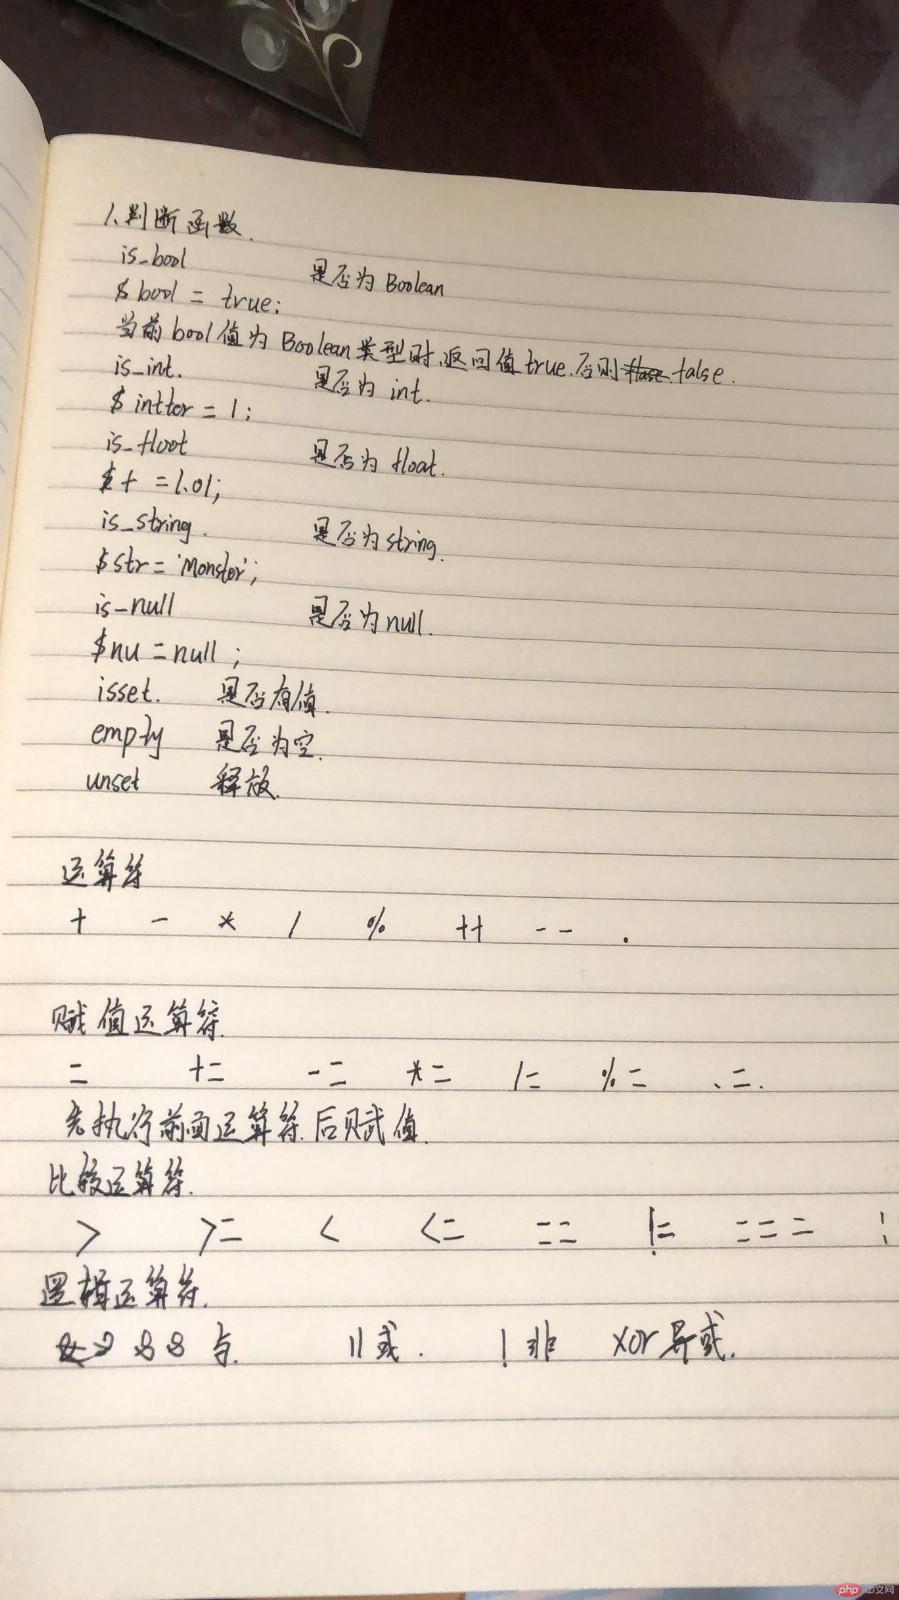 1.判断函数.
is_bool 是否为 Boolean
$bool = true;
当前bool值为 Boolean类型时,返回值true.否则 false.
is_int. 是否为 int.
$intter = 1;
is_float 是否为 float.
$f = 1.01;
is_string. 是否为string.
$str = 'Monster';
is_null 是否为null.
$nu = null;
isset. 是否有值.
empty 是否为空.
unset 释放.
运算符
+ - * / % ++ -- .
赋值运算符.
= += -= *= /= %= .=.
先执行前面运算符.后赋值.
比较运算符.
> >= < <= == != === !
逻辑运算符.
&& 与. || 或. ! 非 xor 异或.
php 中文网